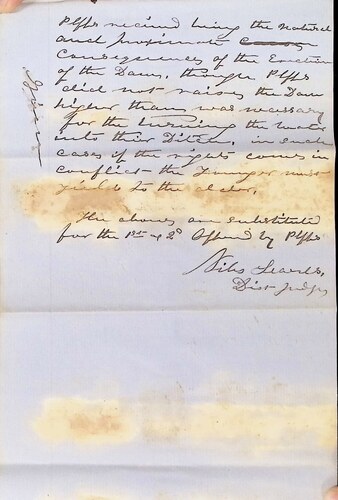 Plffs received being the natural
and proximate
Consequences of the Erection
of the Dam, though Plffs
did not raise the Dam
higher than was necessary
for the turning the water
into their Ditch, in such
cases if the rights comes in
conflict the Younger must
yield to the older.
The above are substituted
for the 1st & 2d offered by Plffs
Niles Searls,
Dist Judge
Given